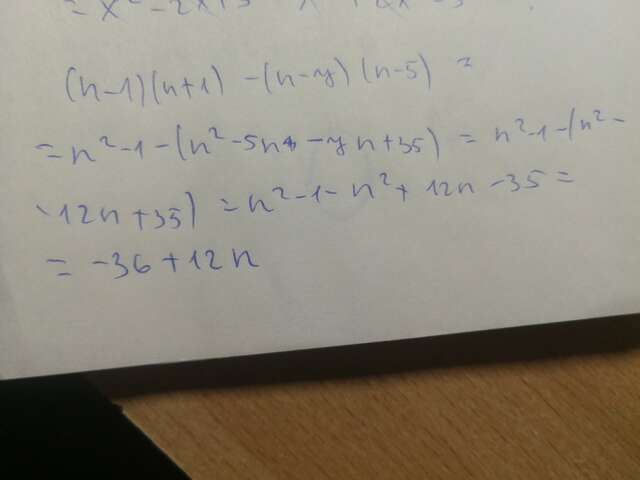 = x² - 2x + 3
(n-1)(n+1) - (n-7)(n-5) =
= n²-1-(n²-5n -7n+35) = n²-1-(n²-
-12n+35) = n²-1-n²+12n-35=
= -36+12n